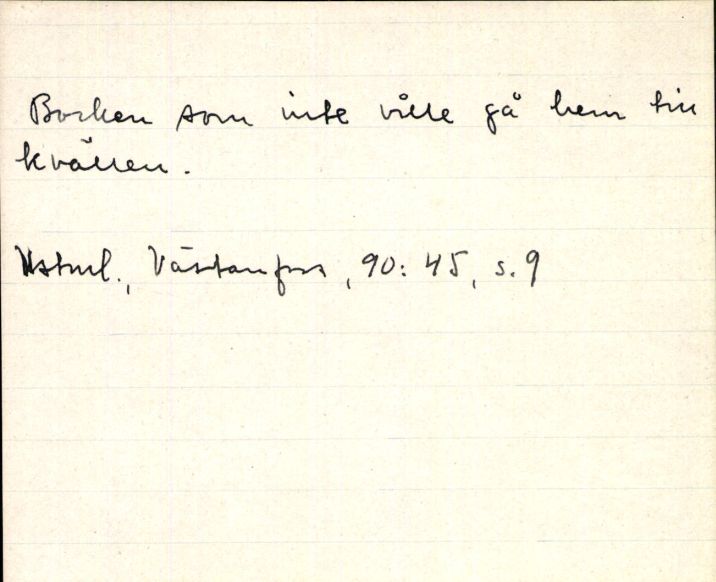 Bocken som inte ville gå hem till
kvällen.
Vstml., Västanfors, 90: 45, s. 9